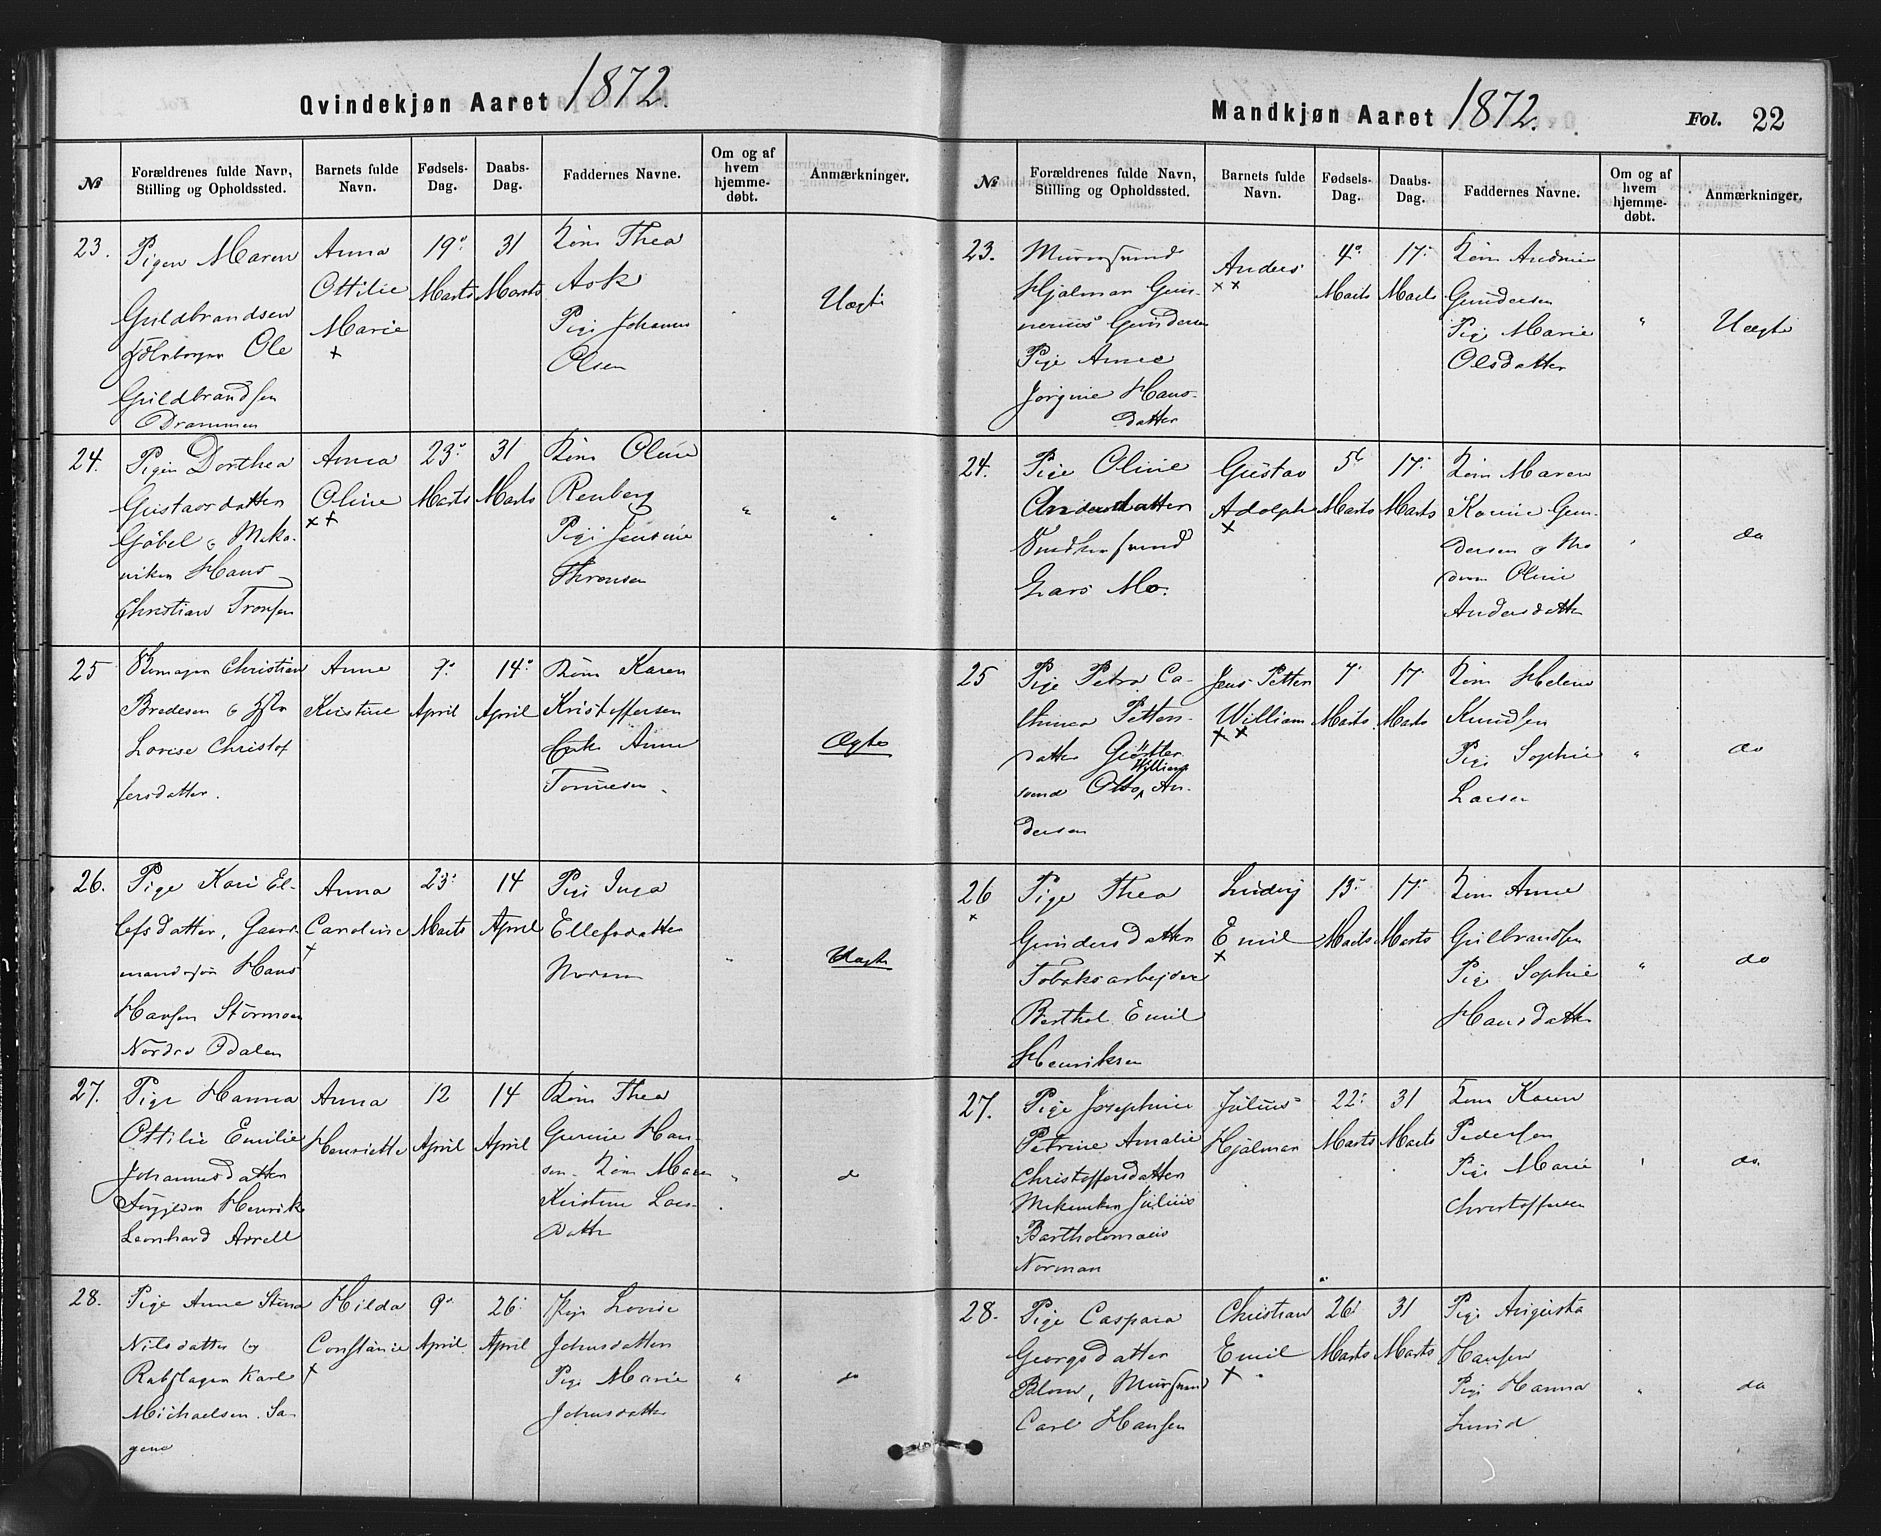 Qvindekjøn Aaret 1872.
№
Forældrenes fulde Navn,
Stilling og Opholdssted.
Barnets fulde
Navn.
Fødsels-
Dag.
Daabs-
Dag.
Faddernes Navne.
Om og af
hvem
hjemme-
døbt.
Anmærkninger.
23.
Pigen Maren
Guldbrandsen
Ole
Guldbrandsen
Drammen
Anna
Ottilie
Marie
×
19de
Marts
31
Marts
Kone Thea
Ask
Pige Johanne
Olsen
Uægte
24.
Pigen Dorthea
Gustavsdatter
Gøbel & Meka-
niker Hans
Christian Tronsen
Anna
Oline
××
23de
Marts
31
Marts
Kone Oline
Renberg
Pige Jensine
Thronsen
"
"
25
Christian
Bredesen & H
Lovise Christof
fersdatter.
Anne
Kristine
7de
April
14de
April
Kone Karen
Kristoffersen
Enke Anne
Tønnesen
Ægte
26.
Pige Kari El-
lefsdatter, Gaard-
mandssøn Hans
Hansen Stormoen
Nordre Odalen
Anna
Caroline
×
23de
Marts
14
April
Pige Inga
Ellefsdatter
Moren
"
Uægte
27.
Pige Hanna
Ottilie Emilie
Johannesdatter
Henrik
Leonhard Arrell
Anna
Henriette
12
April
14
April
Kone Thea
Gurine Han-
sen. Kone Maren
Kirstine Lars-
datter
"
do
28.
Pige Anne Stina
Nilsdatter &
Rebslager Karl
Michaelsen. Sa-
gene
Hilda
Constance
×
9de
April
26de
April
Pige Lovise
Johnsdatter
Pige Marie
Johnsdatter
"
do
Mandkjøn Aaret 1872.
Fol. 22
№
Forældrenes fulde Navn,
Stilling og Opholdssted.
Barnets fulde
Navn.
Fødsels-
Dag.
Daabs-
Dag.
Faddernes Navne.
Om og af
hvem
hjemme-
døbt.
Anmærkninger.
23.
Murersvend
Hjalmar Gun-
nerius Gundersen
Pige Anne
Jørgine Hans-
datter
Anders
××
4de
Marts
17de
Marts
Kone Andrine
Gundersen
Pige Marie
Olsdatter
"
Uægte
24.
Pige Oline
Andersdatter
Snedkersvend
Lars Mo.
Gustav
Adolph
×
5te
Marts
17de
Marts
Kone Maren
Karine Gun-
dersen & Mo
deren Oline
Andersdatter
do
25
Pige Petra Ca-
thinca Petters-
datter Gjørtler
svend Otto William An-
dersen
Jens Petter
William
××
7de
Marts
17de
Marts
Kone Helene
Knudsen
Pige Sophie
Larsen
"
do
26
×
Pige Thea
Gundersdatter
Tobaksarbejder
Berthol Emil
Henriksen
Ludvig
Emil
×
13de
Marts
17de
Marts
Kone Anne
Gulbrandsen
Pige Sophie
Hansdatter
"
do
27.
Pige Josephine
Petrine Amalie
Christoffersdatter
Mekaniker Julius
Bartholomæus
Norman
Julius
Hjalmar
22de
Marts
31
Marts
Kone Karen
Pedersen
Pige Marie
Christoffersen
do.
28.
Pige Caspara
Georgsdatter
Blom, Mursvend
Carl Hansen
Christian
Emil
×
26de
Marts
31
Marts
Pige Augusta
Hansen
Pige Hanna
Lund
"
do